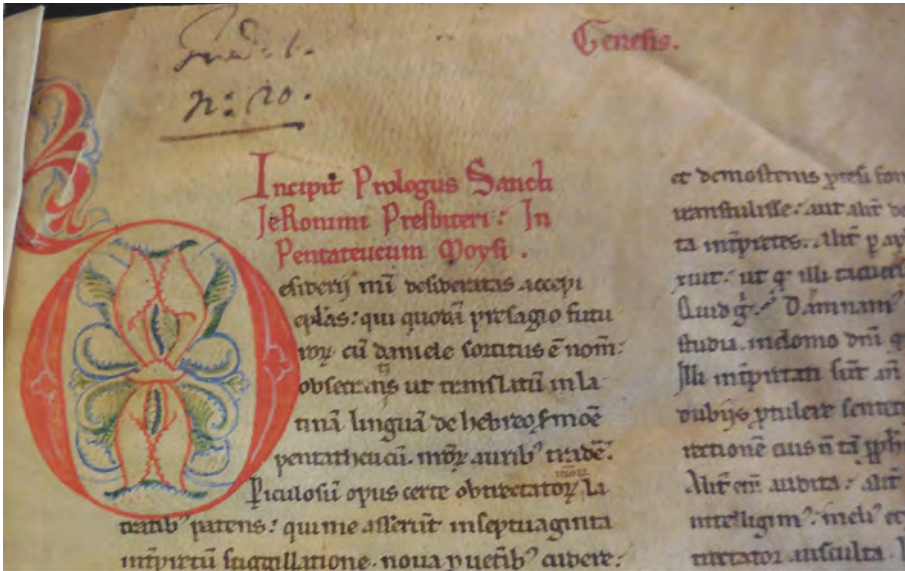 n: 20.
Genesis.
Incipit Prologus Sancti
JeRonimi Presbiteri: In
Pentateucum Moysi.
esiderij mī desideratas accepi
eplās: qui quodā presagio futu
roꝝ cū daniele sortitus ē nom̄:
obsecrantis ut translatū in la
tinā linguā de hebreo sermoē
pentatheucū. nr̄oꝝ aurib᾿ tradēr̄.
Periculosū opus certe obtrectatoꝝ la
tratib᾿ patens: qui me asserūt in septuaginta
int̄pretū suggillatione. nova p vet̄ib᾿ cudere:
et demostenis
transtulisse: aut alit̄
ta int̄pretes. Alit̄ p
xiut: ut qᵈ illi tacuer
Quid gͥ? Damnam᾿
studia. in domo dn̄i
Illi int̄pretati sūt an̄
dubijs ꝓtulere senten
rectionē eius n̄ tā
Alit̄ eni᷒ audita: alit̄
intelligim᾿: meli᾿ et
trectator. ausculta.